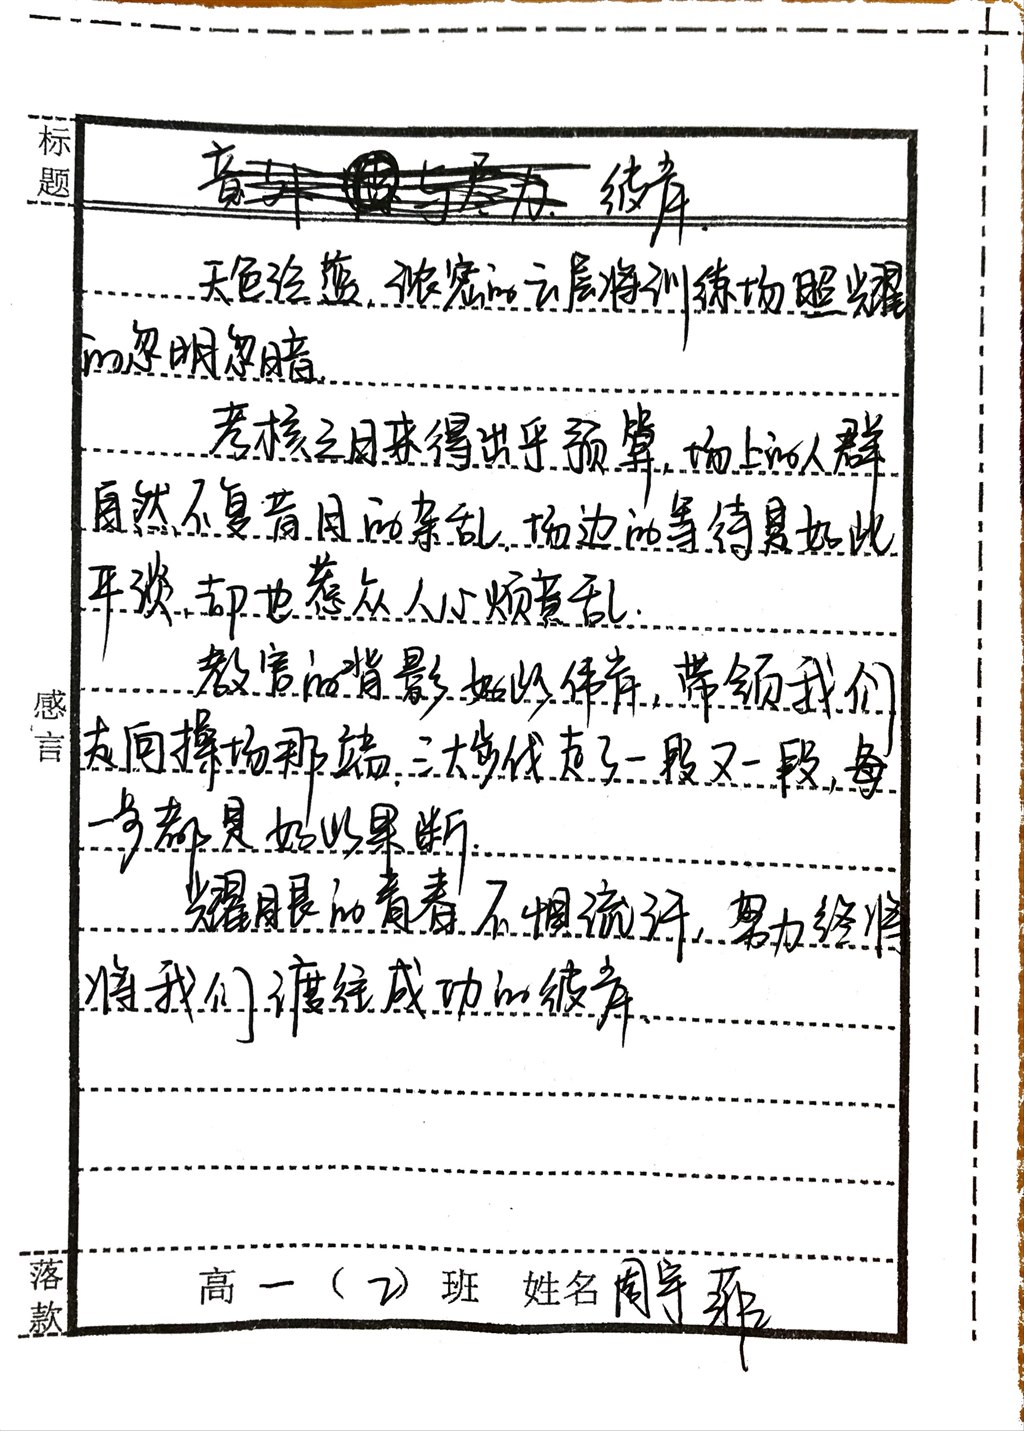 标题
彼岸.
天色沧蓝,浓密的云层将训练场照耀
的忽明忽暗.
考核之日来得出乎预算,场上的人群
自然不复昔日的杂乱,场边的等待是如此
平淡,却也惹众人心烦意乱.
教官的背影如此伟岸,带领我们
走向操场那端,三大步伐走了一段又一段,每
一步都是如此果断.
感言
耀眼的青春不惧流汗,努力终将
将我们渡往成功的彼岸.
落款
高一(2)班 姓名 周宇